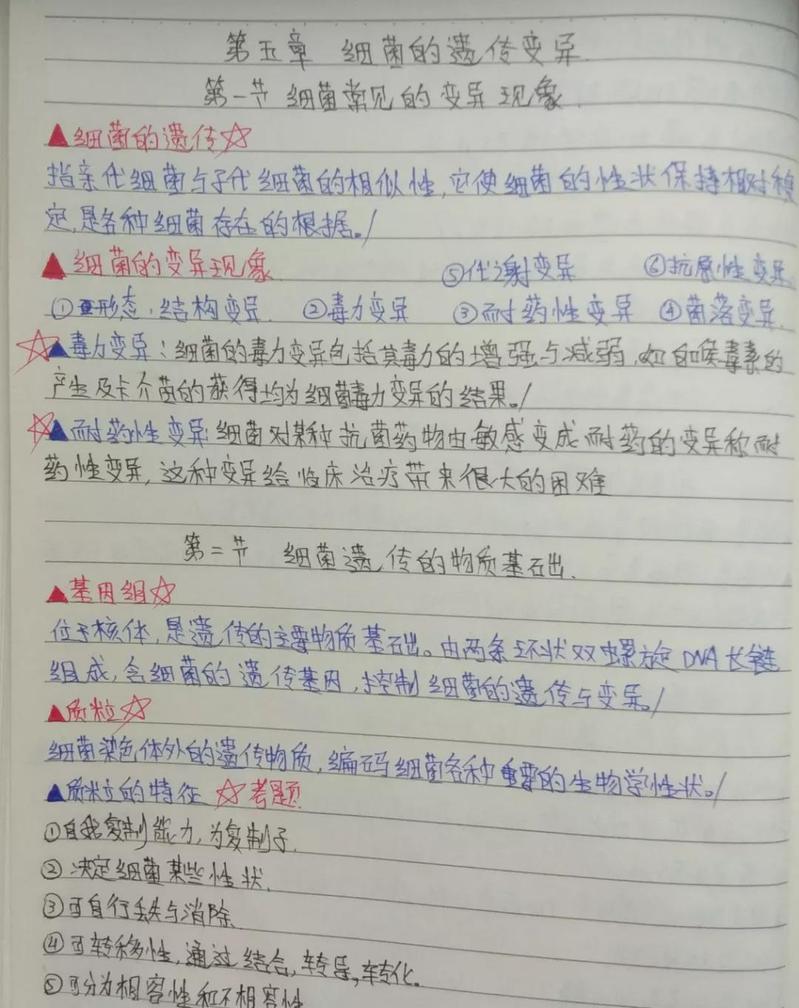 第五章 细菌的遗传变异
第一节 细菌常见的变异现象
▲细菌的遗传☆
指亲代细菌与子代细菌的相似性,它使细菌的性状保持相对稳
定,是各种细菌存在的根据。/
▲细菌的变异现象 ⑤代谢变异 ⑥抗原性变异
①形态、结构变异 ②毒力变异 ③耐药性变异 ④菌落变异
☆▲毒力变异:细菌的毒力变异包括其毒力的增强与减弱,如白喉毒素的
产生及卡介苗的获得均为细菌毒力变异的结果。/
☆▲耐药性变异:细菌对某种抗菌药物由敏感变成耐药的变异称耐
药性变异,这种变异给临床治疗带来很大的困难
第二节 细菌遗传的物质基础.
▲基因组☆
位于核体,是遗传的主要物质基础。由两条环状双螺旋DNA长链
组成,含细菌的遗传基因,控制细菌的遗传与变异。/
▲质粒☆
细菌染色体外的遗传物质,编码细菌各种重要的生物学性状。/
▲质粒的特征 ☆考题
①自我复制能力,为复制子.
②决定细菌某些性状.
③可自行丢失与消除
④可转移性,通过结合,转导,转化。
⑤可分为相容性和不相容性